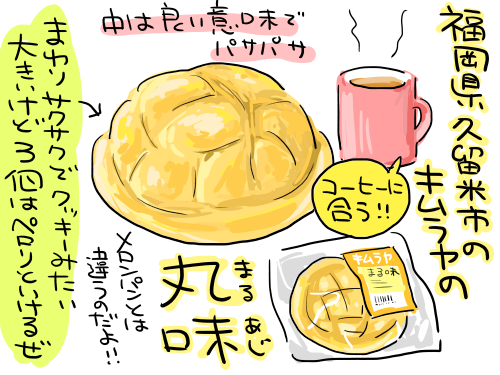 福岡県久留米市の
キムラヤの
中は良い意味で
パサパサ
まわりサクサクでクッキーみたい
大きいけど3個はペロッといけるぜ
コーヒーに
合う!!
丸味
まるあじ
メロンパンとは
違うのだよ!!
キムラヤ
まる味